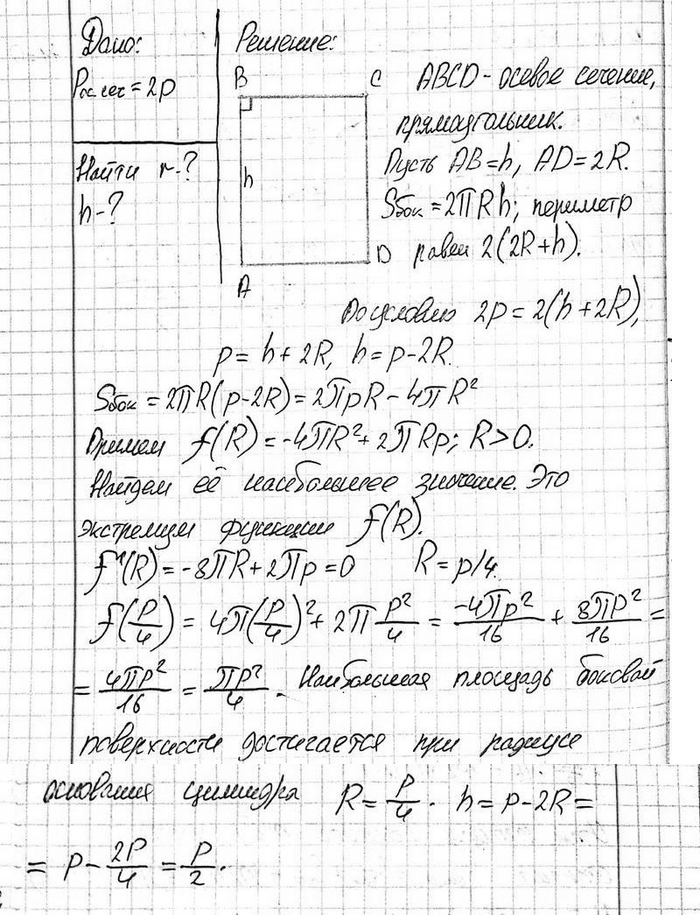 Дано:
Pос.сеч = 2p
Найти r-?
h-?
Решение:
B
C
h
A
D
ABCD - осевое сечение,
прямоугольник.
Пусть AB = h, AD = 2R.
Sбок = 2πRh; периметр
равен 2(2R+h).
По условию 2p = 2(h+2R),
p = h + 2R, h = p-2R.
Sбок = 2πR(p-2R) = 2πpR - 4πR²
Примем f(R) = -4πR² + 2πRp; R>0.
Найдем её наибольшее значение. Это
экстремум функции f(R).
f'(R) = -8πR + 2πp = 0 R = p/4.
f(p/4) = 4π(p/4)² + 2π p²/4 = -4πp²/16 + 8πp²/16 =
= 4πp²/16 = πp²/4. Наибольшая площадь боковой
поверхности достигается при радиусе
основания цилиндра R = p/4. h = p-2R =
= p - 2p/4 = p/2.